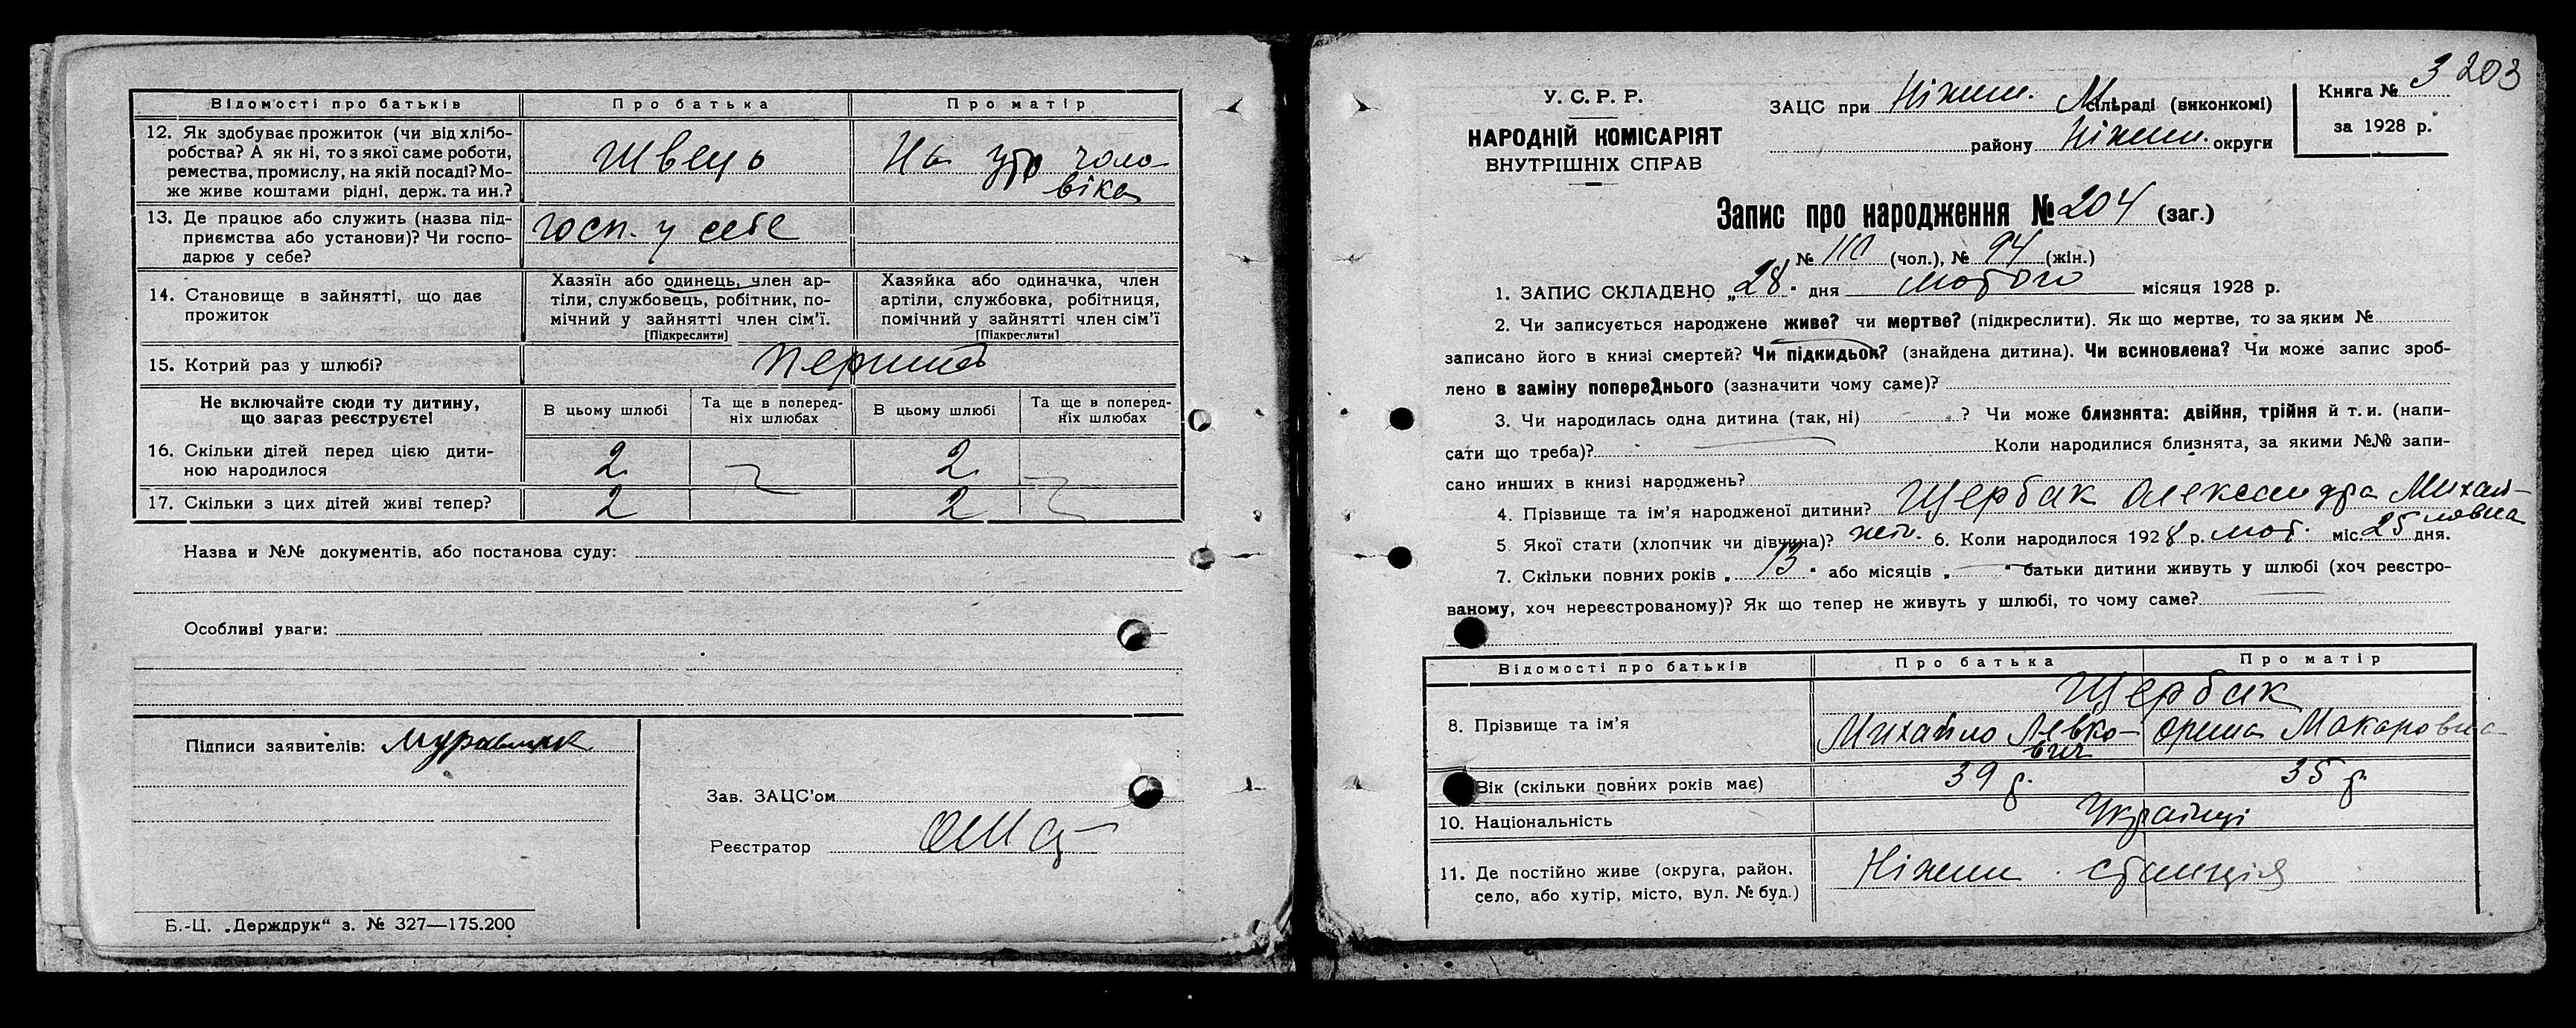 Відомості про батьків Про батька Про матір
12. Як здобуває прожиток (чи від хлібо-
робства? А як ні, то з якої саме роботи,
ремества, промислу, на якій посаді? Мо-
же живе коштами рідні, держ. та ин.?
Швець
На утр чоло-
віка
13. Де працює або служить (назва під-
приємства або установи)? Чи госпо-
дарює у себе?
госп. у себе
14. Становище в зайнятті, що дає
прожиток
Хазяїн або одинець, член ар-
тіли, службовець, робітник, по-
мічний у зайнятті член сім'ї.
[Підкреслити]
Хазяйка або одиначка, член
артіли, службовка, робітниця,
помічний у зайнятті член сім'ї
[Підкреслити]
15. Котрий раз у шлюбі?
Не включайте сюди ту дитину,
що загаз реєструєте!
В цьому шлюбі
Та ще в поперед-
ніх шлюбах
В цьому шлюбі
Та ще в поперед-
ніх шлюбах
16. Скільки дітей перед цією дити-
ною народилося
2 2
17. Скільки з цих дітей живі тепер? 2 2
Назва и №№ документів, або постанова суду:
Особливі уваги:
Підписи заявителів:
Зав. ЗАЦС'ом
Реєстратор
Б.-Ц. „Держдрук“ з. № 327—175.200
3 203
У. С. Р. Р.
НАРОДНІЙ КОМІСАРІЯТ
ВНУТРІШНІХ СПРАВ
ЗАЦС при Ніжин. М сільраді (виконкомі)
району Ніжин. округи
Книга №
за 1928 р.
Запис про народження № 204 (заг.)
№ 110 (чол.), № 94 (жін.)
1. ЗАПИС СКЛАДЕНО „28“ дня лютого місяця 1928 р.
2. Чи записується народжене живе? чи мертве? (підкреслити). Як що мертве, то за яким №
записано його в книзі смертей? Чи підкидьок? (знайдена дитина). Чи всиновлена? Чи може запис зроб-
лено в заміну попереднього (зазначити чому саме)?
3. Чи народилась одна дитина (так, ні) ? Чи може близнята: двійня, трійня й т. и. (напи-
сати що треба)? Коли народилися близнята, за якими №№ запи-
сано инших в книзі народжень?
4. Прізвище та ім'я народженої дитини? Щербак Олександра Михай-
ловна
5. Якої стати (хлопчик чи дівчина)? жін. 6. Коли народилося 1928 р. лют. міс 25 дня.
7. Скільки повних років „13“ або місяців „ “ батьки дитини живуть у шлюбі (хоч реєстро-
ваному, хоч нереєстрованому)? Як що тепер не живуть у шлюбі, то чому саме?
Відомості про батьків Про батька Про матір
Щербак
8. Прізвище та ім'я
Михайло Левко-
вич
Орина Макаровна
Вік (скільки повних років має) 39 р. 35 р.
10. Національність Українці
11. Де постійно живе (округа, район,
село, або хутір, місто, вул. № буд.)
Ніжин станція